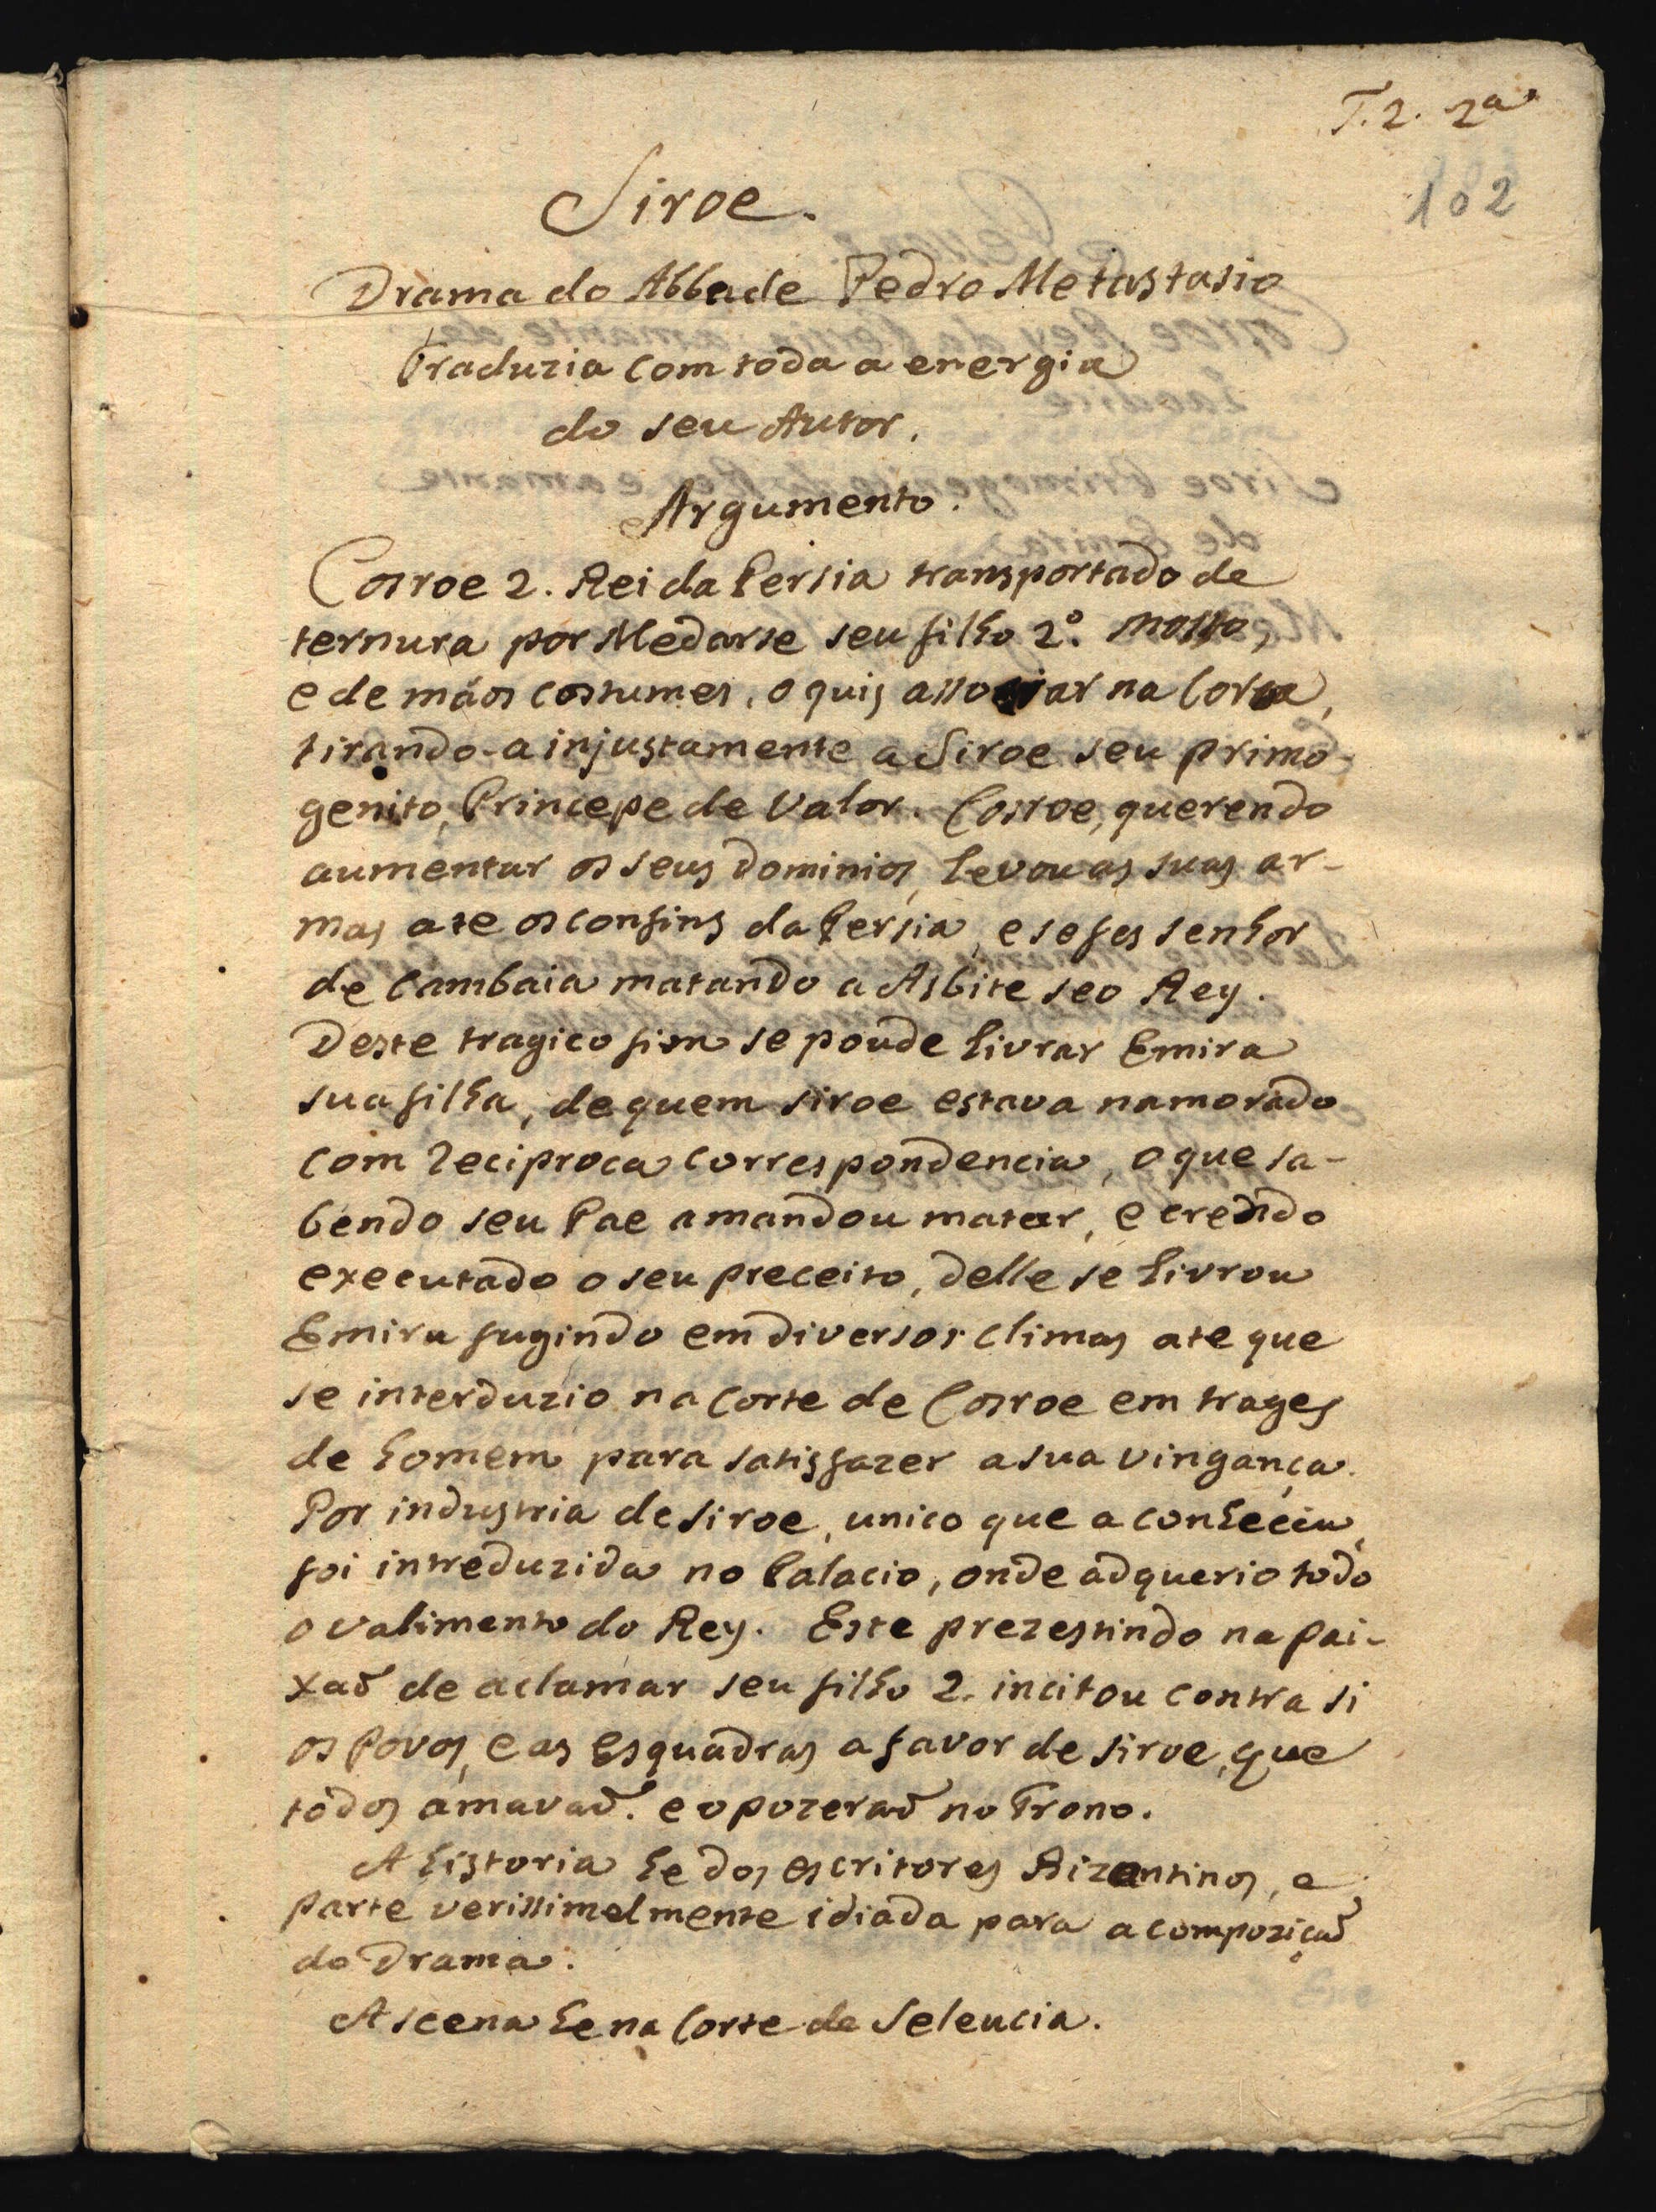 T. 2. 2ª
102
Siroe.
Drama do Abbade Pedro Metastasio
Traduzia com toda a energia
do seu Autor.
Argumento.
Cosroe 2. Rei da Persia transportado de
ternura por Medarse seu filho 2º. mosso,
e de máos costumes, o quis associar na Coroa,
tirando-a injustamente a Siroe seu primo-
genito, Princepe de Valor. Cosroe, querendo
aumentar os seus dominios, levou as suas ar-
mas ate os confins da Persia, e se fes senhor
de Cambaia matando a Asbite seo Rey.
Deste tragico fim se poude livrar Emira
sua filha, de quem Siroe estava namorado
com reciproca correspondencia, o que sa-
bendo seu Pae a mandou matar, e credndo
executado o seu preceito, delle se livrou
Emira fugindo em diversos climas ate que
se interduzio na Corte de Cosroe em trages
de homem para satisfazer a sua vingança.
Por industria de Siroe, unico que a conheciu,
foi intreduzida no Palacio, onde adquerio todo
o valimento do Rey. Este prezestindo na pai-
xaõ de aclamar seu filho 2. incitou contra si
os Povos, e as Esquadras a favor de Siroe, que
todos amavaõ. e o pozeraõ no Trono.
A historia he dos escritores Bizantinos, e
parte verissimelmente idiada para a compoziçaõ
do Drama.
A scena he na Corte de Seleucia.